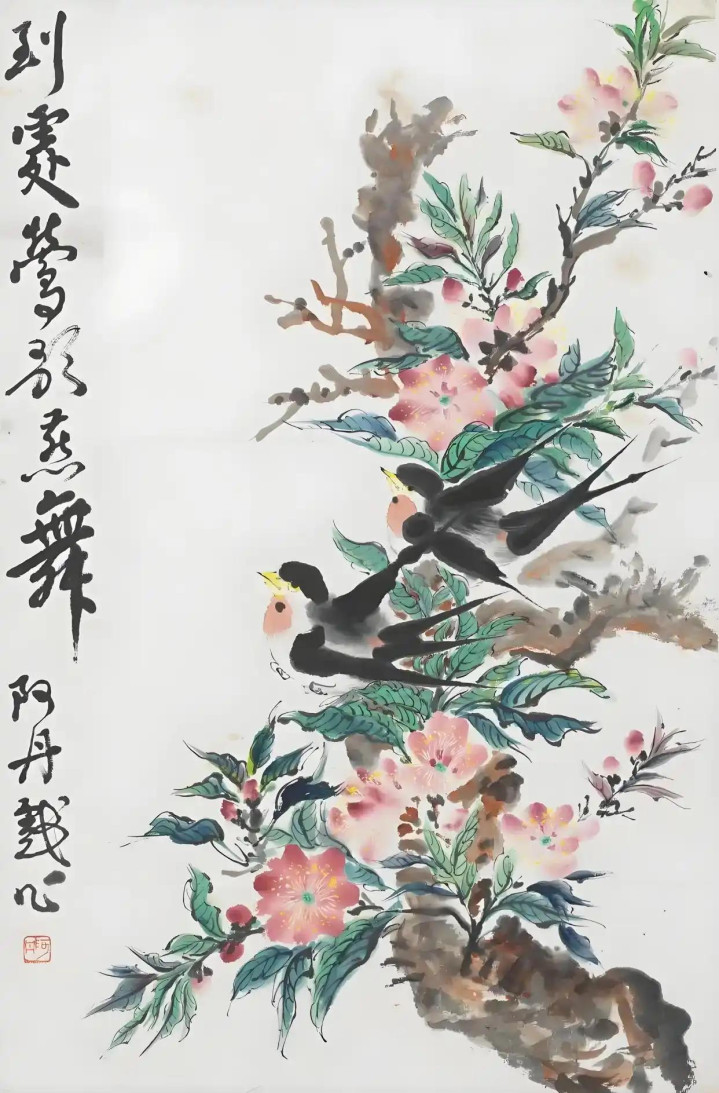 到處鶯歌燕舞
阿丹戲作